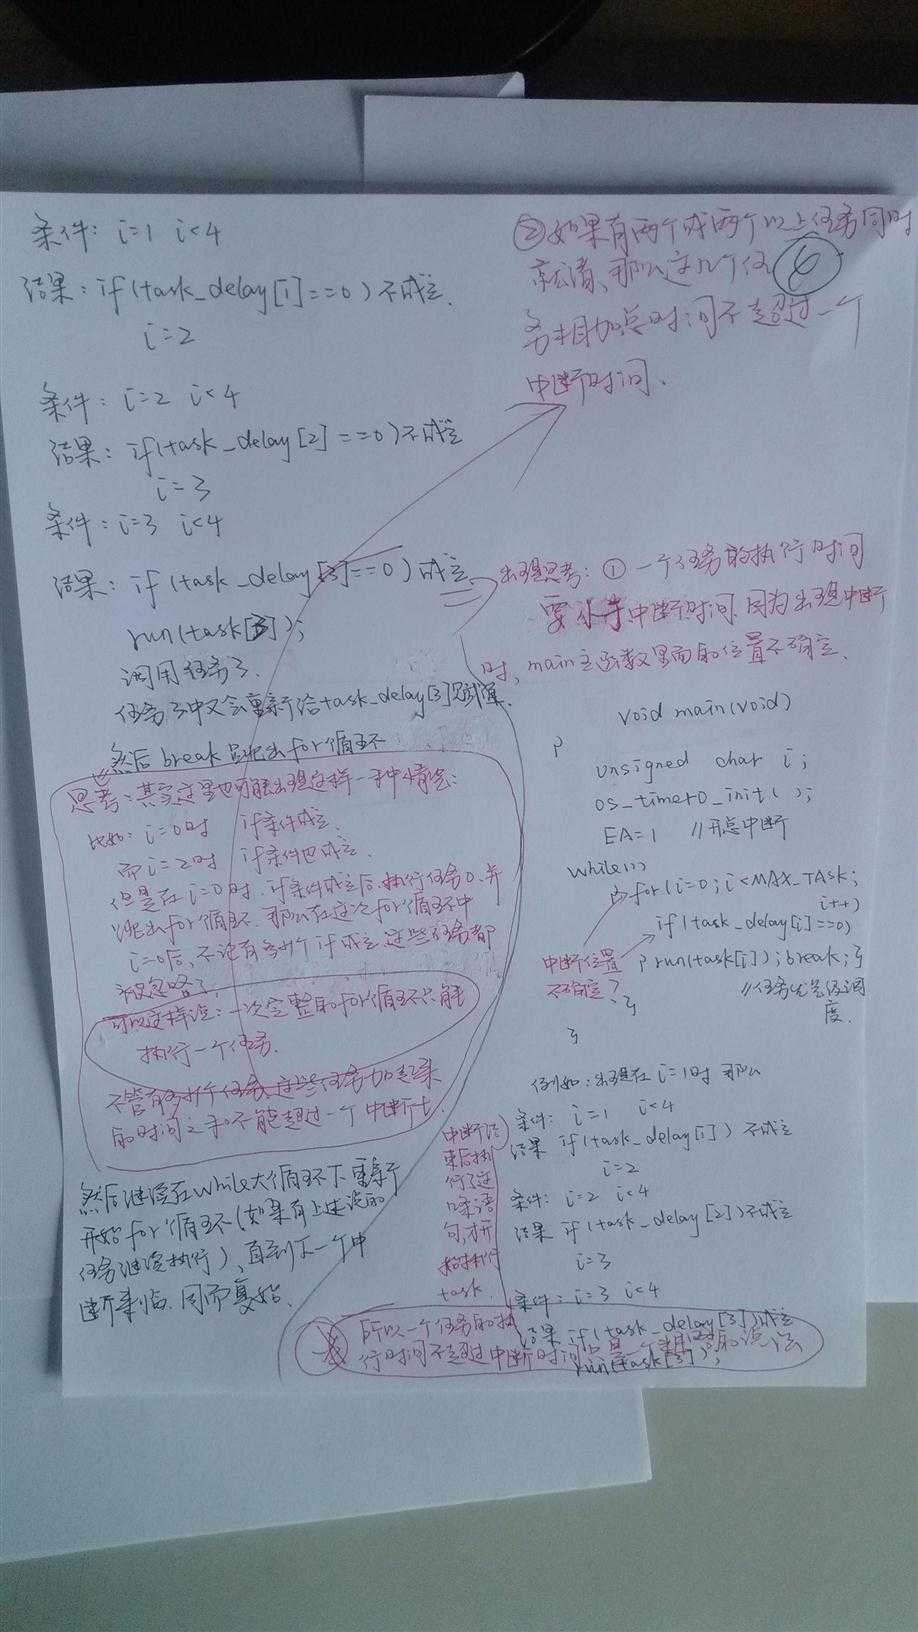 条件: i=1 i<4
结果: if(task_delay[1]==0)不成立.
i=2
条件: i=2 i<4
结果: if(task_delay[2]==0)不成立
i=3
条件: i=3 i<4
结果: if(task_delay[3]==0)成立.
run(task[3]);
调用任务3.
任务3中又会重新给task_delay[3]赋值.
然后break跳出for循环
思考: 其实这里也可能出现这样一种情况:
比如: i=0时 if条件成立.
而i=2时 if条件也成立.
但是在i=0时,if条件成立后,执行任务0,并
跳出for循环.那么在这次for循环中
i=0后,不论有多少个if成立 这些任务都
被忽略了.
可以这样说: 一次完整的for循环只能
执行一个任务.
不管有多少个任务,这些任务加起来
的时间之和不能超过一个中断t.
然后继续在while大循环下重新
开始for循环(如果有上述说的
任务继续执行),直到下一个中
断来临.周而复始.
②如果有两个或两个以上任务同时
就绪,那么这几个任
6
务相加总时间不超过一个
中断时间.
出现思考: ① 一个任务的执行时间
要小于中断时间.因为出现中断
时, main主函数里面的位置不确定.
void main(void)
{
unsigned char i;
os_timer0_init();
EA=1 //开总中断
while(1)
{for(i=0;i<MAX_TASK;
i++)
if(task_delay[i]==0)
{run(task[i]);break;}
//任务优先级调
度.
}
}
中断位置
不确定?
例如: 出现在i=1时 那么
条件: i=1 i<4
结果 if(task_delay[1])不成立
i=2
条件: i=2 i<4
结果 if(task_delay[2])不成立
i=3
条件: i=3 i<4
结果 if(task_delay[3])成立
run(task[3]);
中断结
束后执
行了这
么
语
句,才开
始执行
task.
所以一个任务的执
行时间不超过中断时间是一个的说法